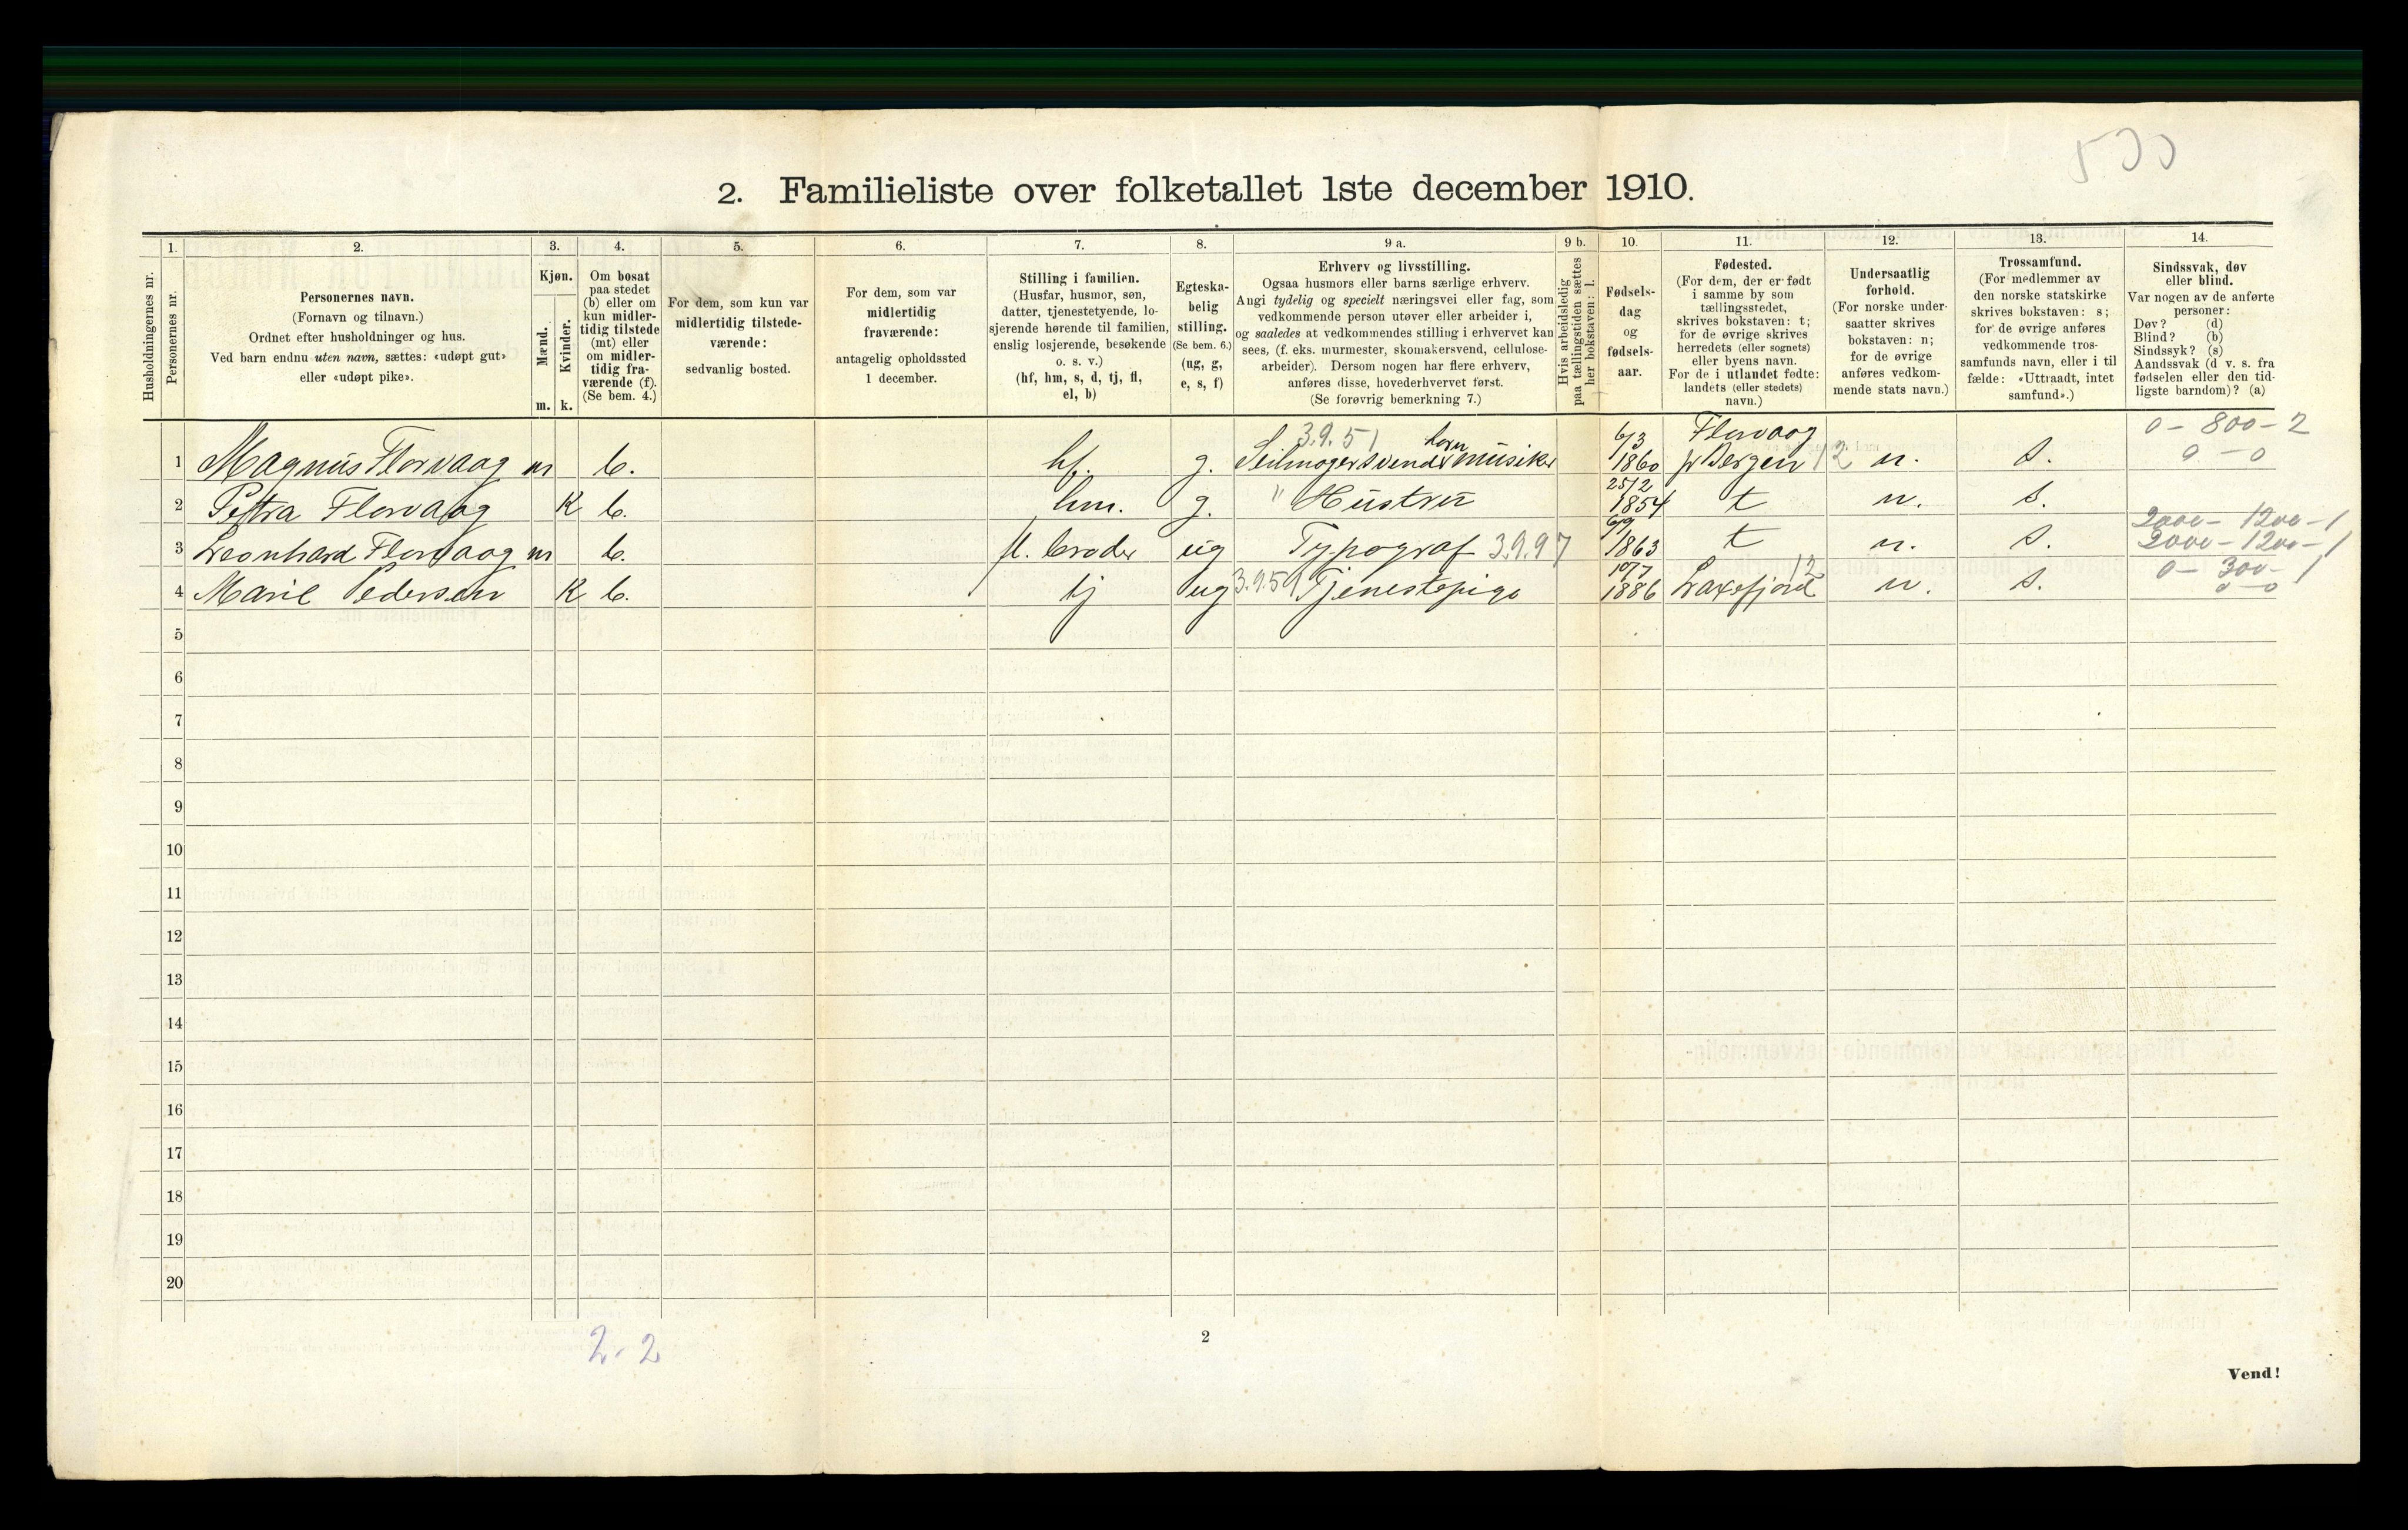 530
2. Familieliste over folketallet 1ste december 1910.
Husholdningernes nr.
1.
Personernes nr.
2.
Personernes navn.
(Fornavn og tilnavn.)
Ordnet efter husholdninger og hus.
Ved barn endnu uten navn, sættes: «udøpt gut»
eller «udøpt pike».
3.
Kjøn.
Mænd.
Kvinder.
m. k.
4.
Om bosat
paa stedet
(b) eller om
kun midler-
tidig tilstede
(mt) eller
om midler-
tidig fra-
værende (f).
(Se bem. 4.)
5.
For dem, som kun var
midlertidig tilstede-
værende:
sedvanlig bosted.
6.
For dem, som var
midlertidig
fraværende:
antagelig opholdssted
1 december.
7.
Stilling i familien.
(Husfar, husmor, søn,
datter, tjenestetyende, lo-
sjerende hørende til familien,
enslig losjerende, besøkende
o. s. v.)
(hf, hm, s, d, tj, fl,
el, b)
8.
Egteska-
belig
stilling.
(Se bem. 6.)
(ug, g,
e, s, f)
9 a.
Erhverv og livsstilling.
Ogsaa husmors eller barns særlige erhverv.
Angi tydelig og specielt næringsvei eller fag, som
vedkommende person utøver eller arbeider i,
og saaledes at vedkommendes stilling i erhvervet kan
sees, (f. eks. murmester, skomakersvend, cellulose-
arbeider). Dersom nogen har flere erhverv,
anføres disse, hovederhvervet først.
(Se forøvrig bemerkning 7.)
9 b.
Hvis arbeidsledig
paa tællingstiden sættes
her bokstaven: l.
10.
Fødsels-
dag
og
fødsels-
aar.
11.
Fødested.
(For dem, der er født
i samme by som
tællingsstedet,
skrives bokstaven: t;
for de øvrige skrives
herredets (eller sognets)
eller byens navn.
For de i utlandet fødte:
landets (eller stedets)
navn.)
12.
Undersaatlig
forhold.
(For norske under-
saatter skrives
bokstaven: n;
for de øvrige
anføres vedkom-
mende stats navn.)
13.
Trossamfund.
(For medlemmer av
den norske statskirke
skrives bokstaven: s;
for de øvrige anføres
vedkommende tros-
samfunds navn, eller i til
fælde: «Uttraadt, intet
samfund».)
14.
Sindssvak, døv
eller blind.
Var nogen av de anførte
personer:
Døv? (d)
Blind? (b)
Sindssyk? (s)
Aandssvak (d v. s. fra
fødselen eller den tid-
ligste barndom)? (a)
3.9.51 horn 6/3 Florvaag 0 - 800 - 2
1 Magnus Florvaag m b. hf. g. Seilmagersvend & musiker 1860 pr Bergen 12 n. s. 0 - 0
25/2
2 Petra Florvaag K b. hm. g. " Hustru 1854 t n. s.
6/9 2000 - 1200 - 1
3 Leonhard Florvaag m b. fl. broder ug Typograf 3.9.97 1863 t n. s. 2000 - 1200 - 1
10/7 12 0 - 300 - 1
4 Marie Pedersen K b. tj ug 3.9.59 Tjenestepige 1886 Laxefjord n. s. 0 - 0
5
6
7
8
9
10
11
12
13
14
15
16
17
18
19
20
2-2
2
Vend!